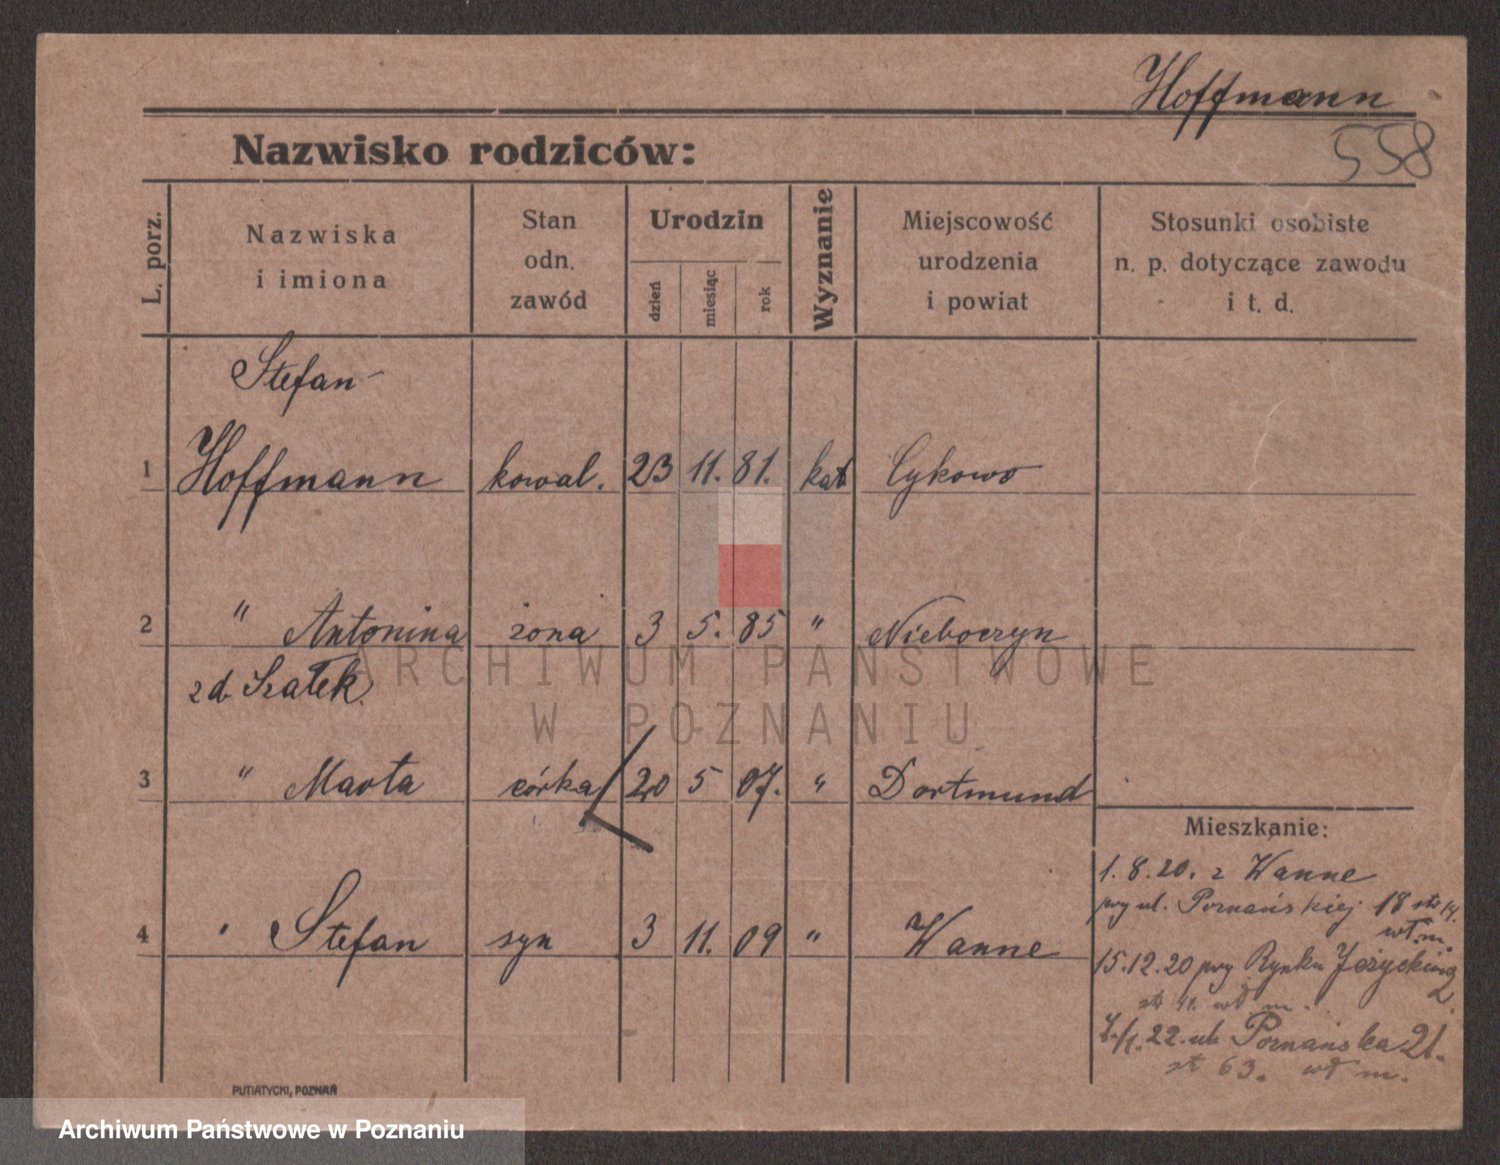 Hoffmann
558
Nazwisko rodziców:
L. porz.
Nazwiska
i imiona
Stan
odn.
zawód
Urodzin
dzień
miesiąc
rok
Wyznanie
Miejscowość
urodzenia
i powiat
Stosunki osobiste
n. p. dotyczące zawodu
i t. d.
Stefan
1 Hoffmann kowal. 23 11. 81. kat Cykowo
2 " Antonina żona 3 5. 85 " Nieboczyn
zd. Szałek
3 " Marta córka 20 5 07. " Dortmund
4 " Stefan syn 3 11. 09 " Wanne
Mieszkanie:
1.8.20. z Wanne
przy ul. Poznańskiej 18 str 14.
wł. m.
15.12.20 przy Rynku Jeżyckim 2
wł m.
7./1.22. ul. Poznańska 21.
st 63. wł m.
PUTIATYCKI, POZNAŃ
ARCHIWUM PAŃSTWOWE
W POZNANIU
Archiwum Państwowe w Poznaniu